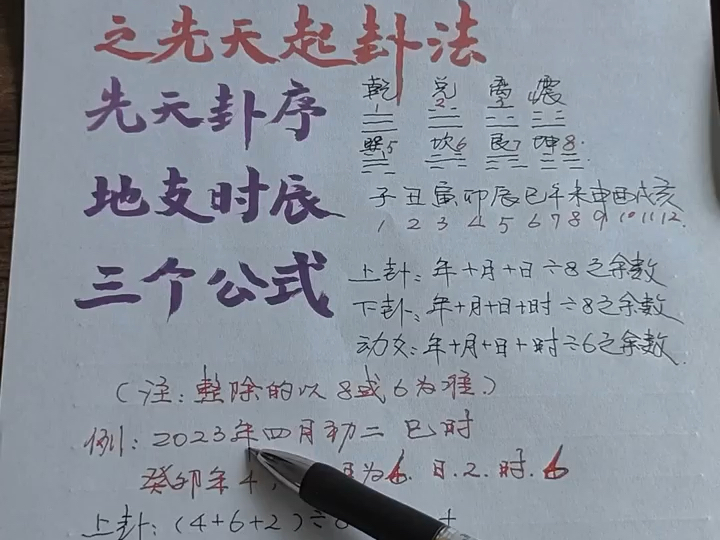 之先天起卦法
先天卦序
乾 兑 离 震
1 2 3 4
巽5 坎6 艮7 坤8
地支时辰
子丑寅卯辰巳午未申酉戌亥
1 2 3 4 5 6 7 8 9 10 11 12
三个公式
上卦：年+月+日÷8之余数
下卦：年+月+日+时÷8之余数
动爻：年+月+日+时÷6之余数
（注：整除的以8或6为准）
例：2023年四月初二 巳时
癸卯年4, 为6. 日.2. 时.6
上卦：(4+6+2)÷8